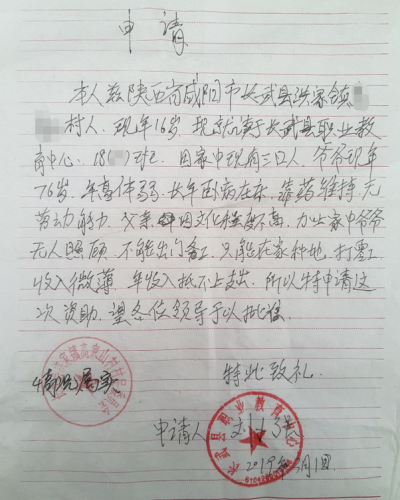 申请
本人兹陕西省咸阳市长武县洪家镇
村人. 现年16岁. 现就读于长武县职业教
育中心. 18( )班. 因家中现有三口人, 爷爷现年
76岁. 年事体弱. 长年卧病在床, 靠药维持, 无
劳动能力. 父亲因文化程度不高. 加之家中爷爷
无人照顾 不能出门务工 只能在家种地, 打零工
收入微薄. 年收入抵不上支出. 所以特申请这
次资助. 望各位领导予以批准.
特此致礼.
情况属实
申请人
2019年3月1日